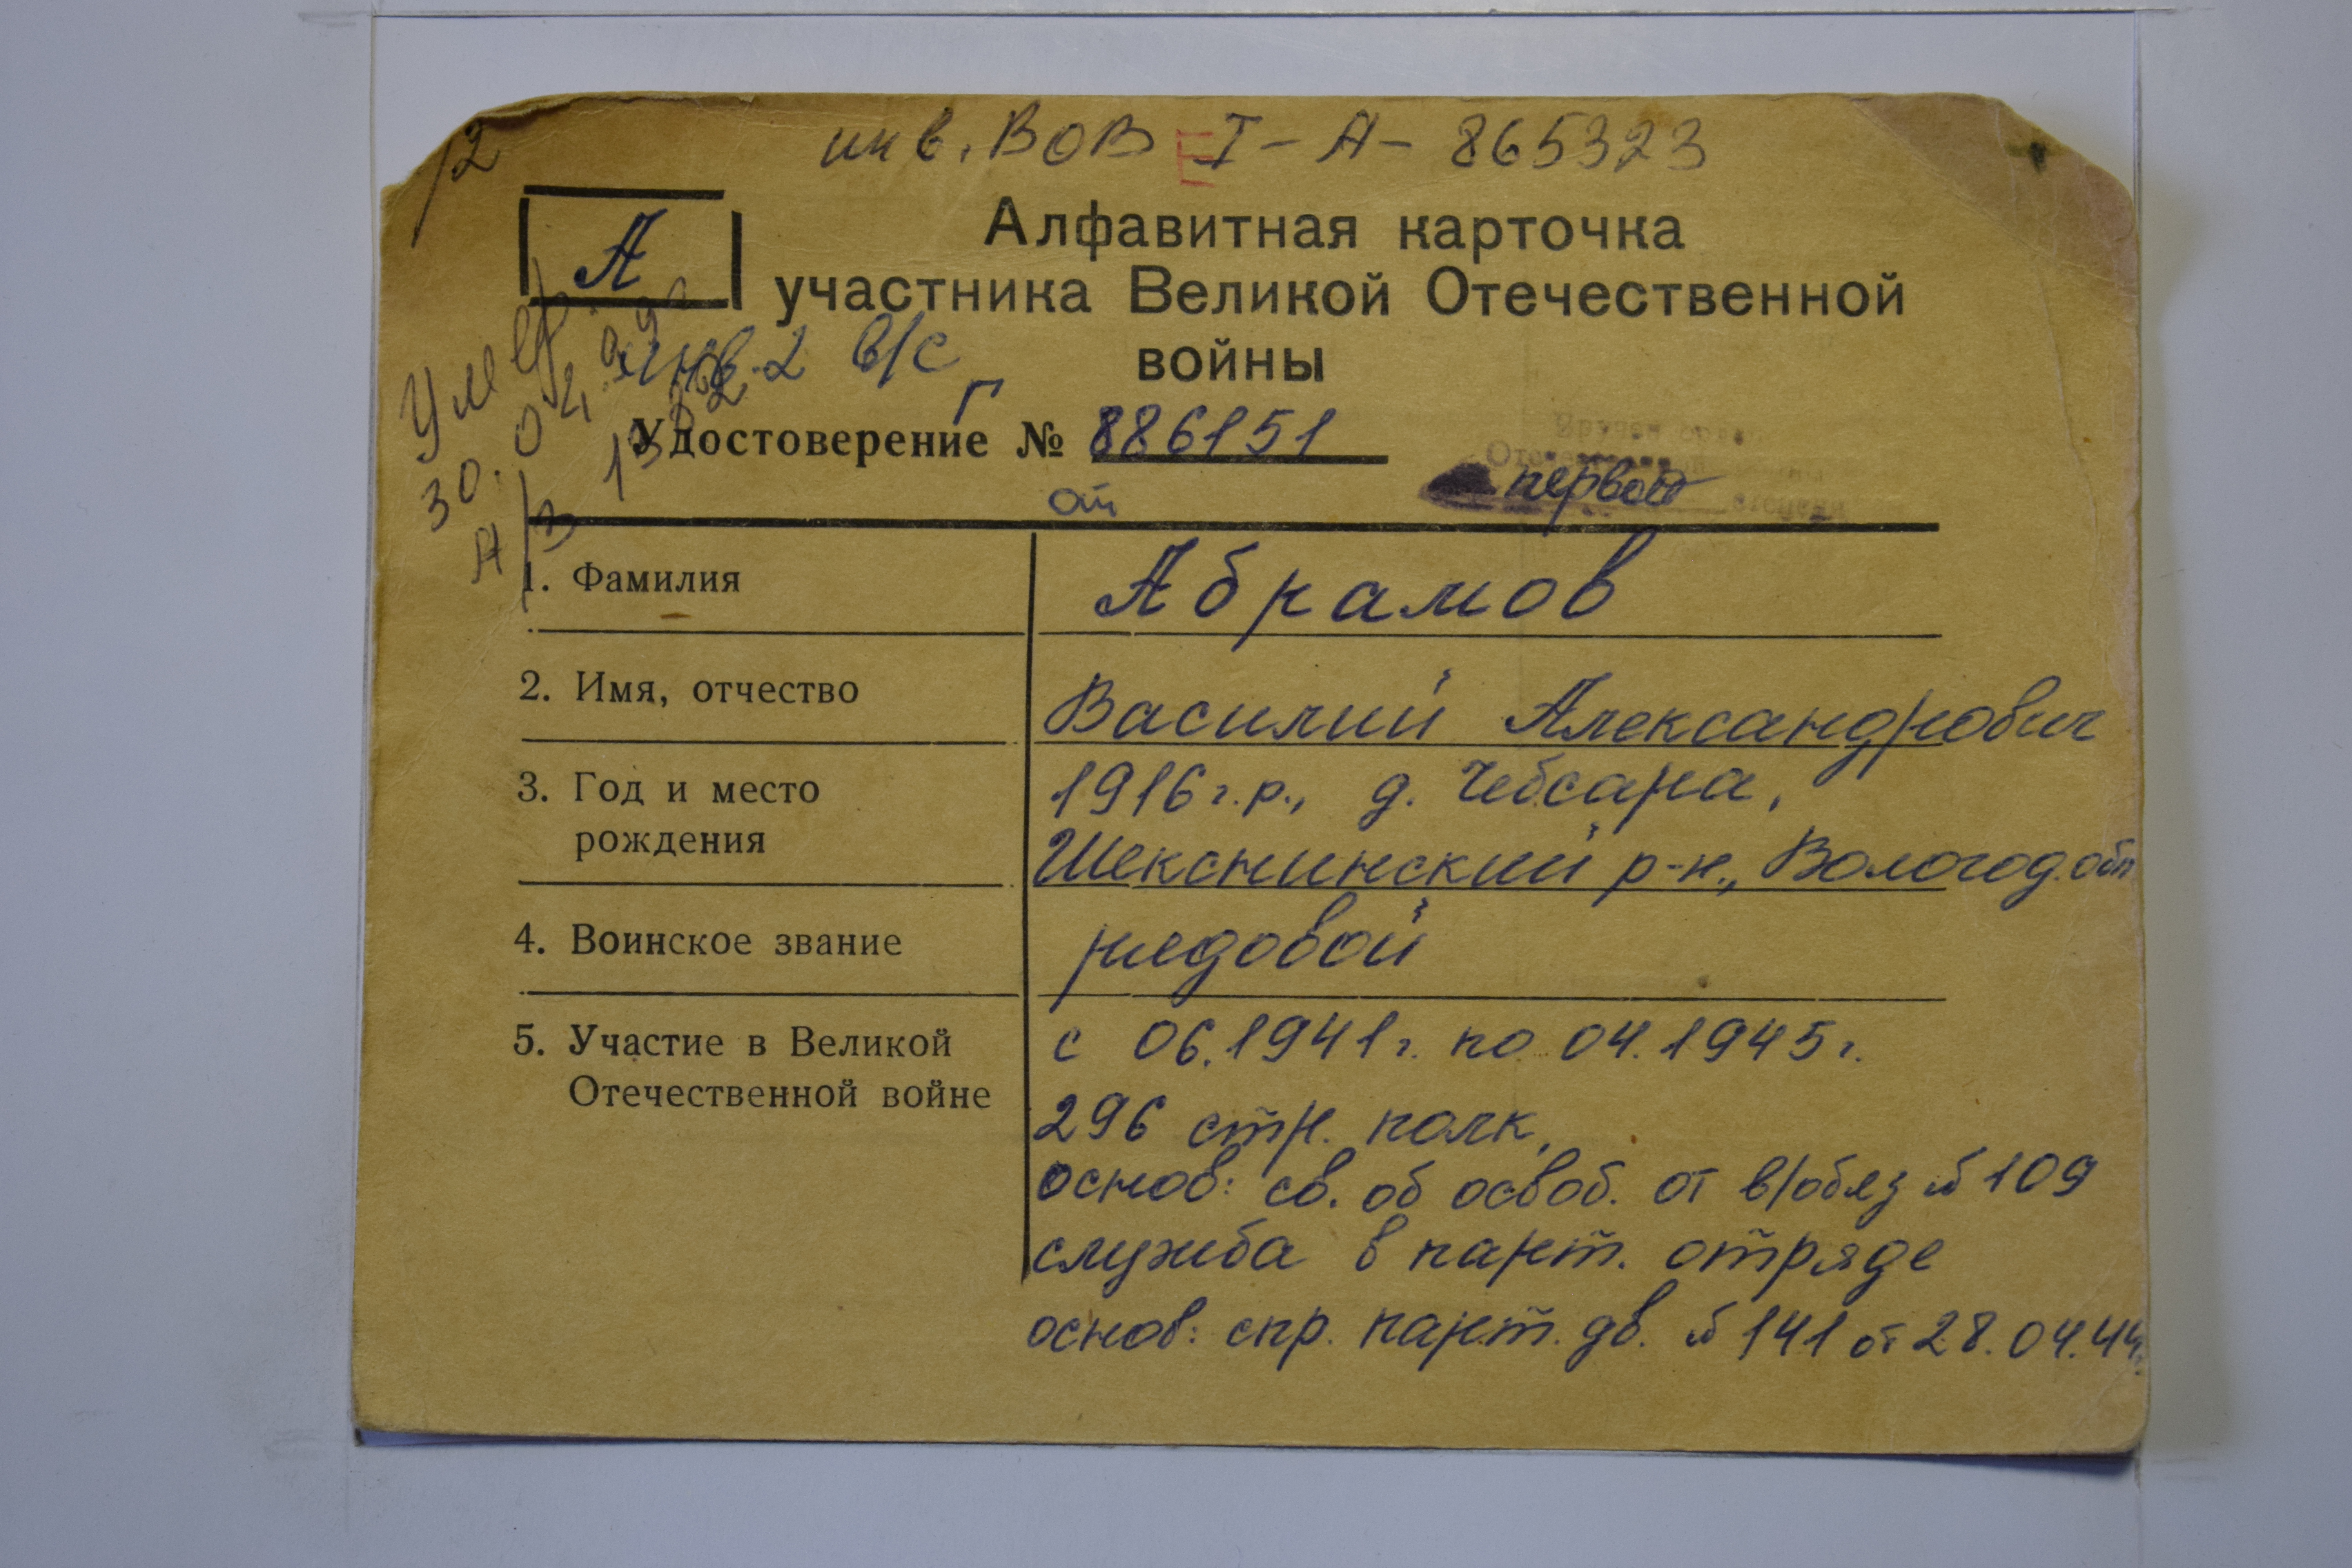 12
инв. ВОВ I - А - 865323
А
Алфавитная карточка
участника Великой Отечественной
войны
Умер
30.04.
инв. 2 в/с
Г
Удостоверение № 886151
от
первой
степени
1. Фамилия
Абрамов
2. Имя, отчество
Василий Александрович
3. Год и место
рождения
1916 г.р., д. Чебсара,
Шекснинский р-н., Вологод. обл
4. Воинское звание
рядовой
5. Участие в Великой
Отечественной войне
с 06.1941г. по 04.1945г.
296 стр. полк,
основ: св. об освоб. от в/обяз № 109
служба в парт. отряде
основ: спр. парт. дв. № 141 от 28.04.44г.